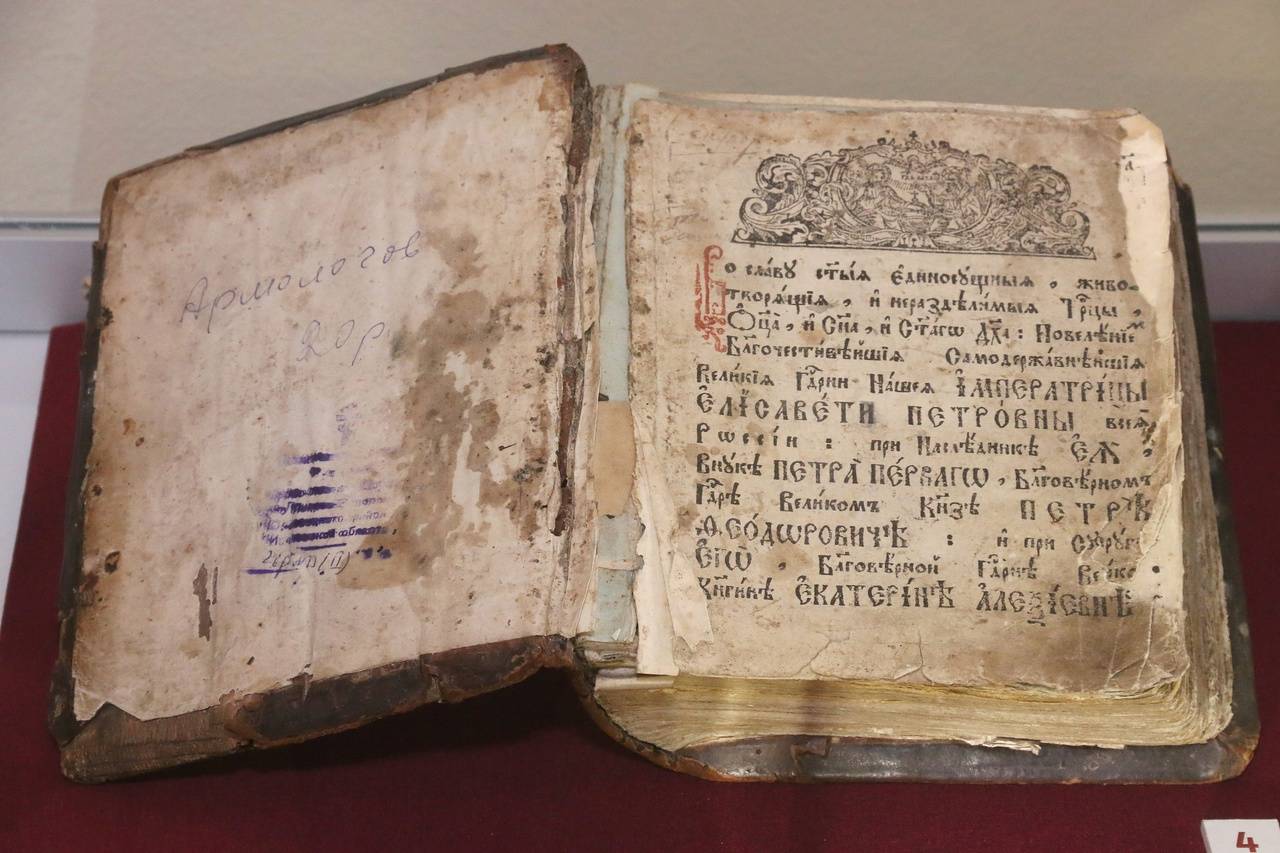 Армологов
Во славу ст҃ы́ѧ є҆диносꙋ́щныѧ, живо-
творѧ́щїѧ, и҆ нераздѣли́мыѧ Трⷪ҇цы,
Ѻ҆ц҃а̀, и҆ Сн҃а, и҆ Ст҃а́гѡ Дх҃а: Повелѣ́нїемъ
Бл҃гочести́вѣйшїѧ Самодержа́внѣйшїѧ
Вели́кїѧ Гдⷭ҇рни На́шеѧ І҆МПЕРАТРІ́ЦЫ
Є҆ЛІСАВЕ́ТИ ПЕТРО́ВНЫ всеѧ̀
Рѡссі́и: при Наслѣ́дникѣ Є҆Ѧ̀,
Внꙋ́кѣ ПЕТРА̀ ПЕ́РВАГѠ, Бл҃говѣ́рномъ
Гдⷭ҇рѣ Вели́комъ Кнѧ҃зѣ ПЕТРѢ̀
Ѳ҆ЕО́ДѠРОВИЧѢ: и҆ при Сꙋпрꙋ́гѣ
Є҆гѡ̀, Бл҃говѣ́рной Гдⷭ҇рнѣ Вели́кой
Кнѧги́нѣ Є҆КАТЕРІ́НѢ А҆ЛЕѮІ́ЕВНѢ:
4